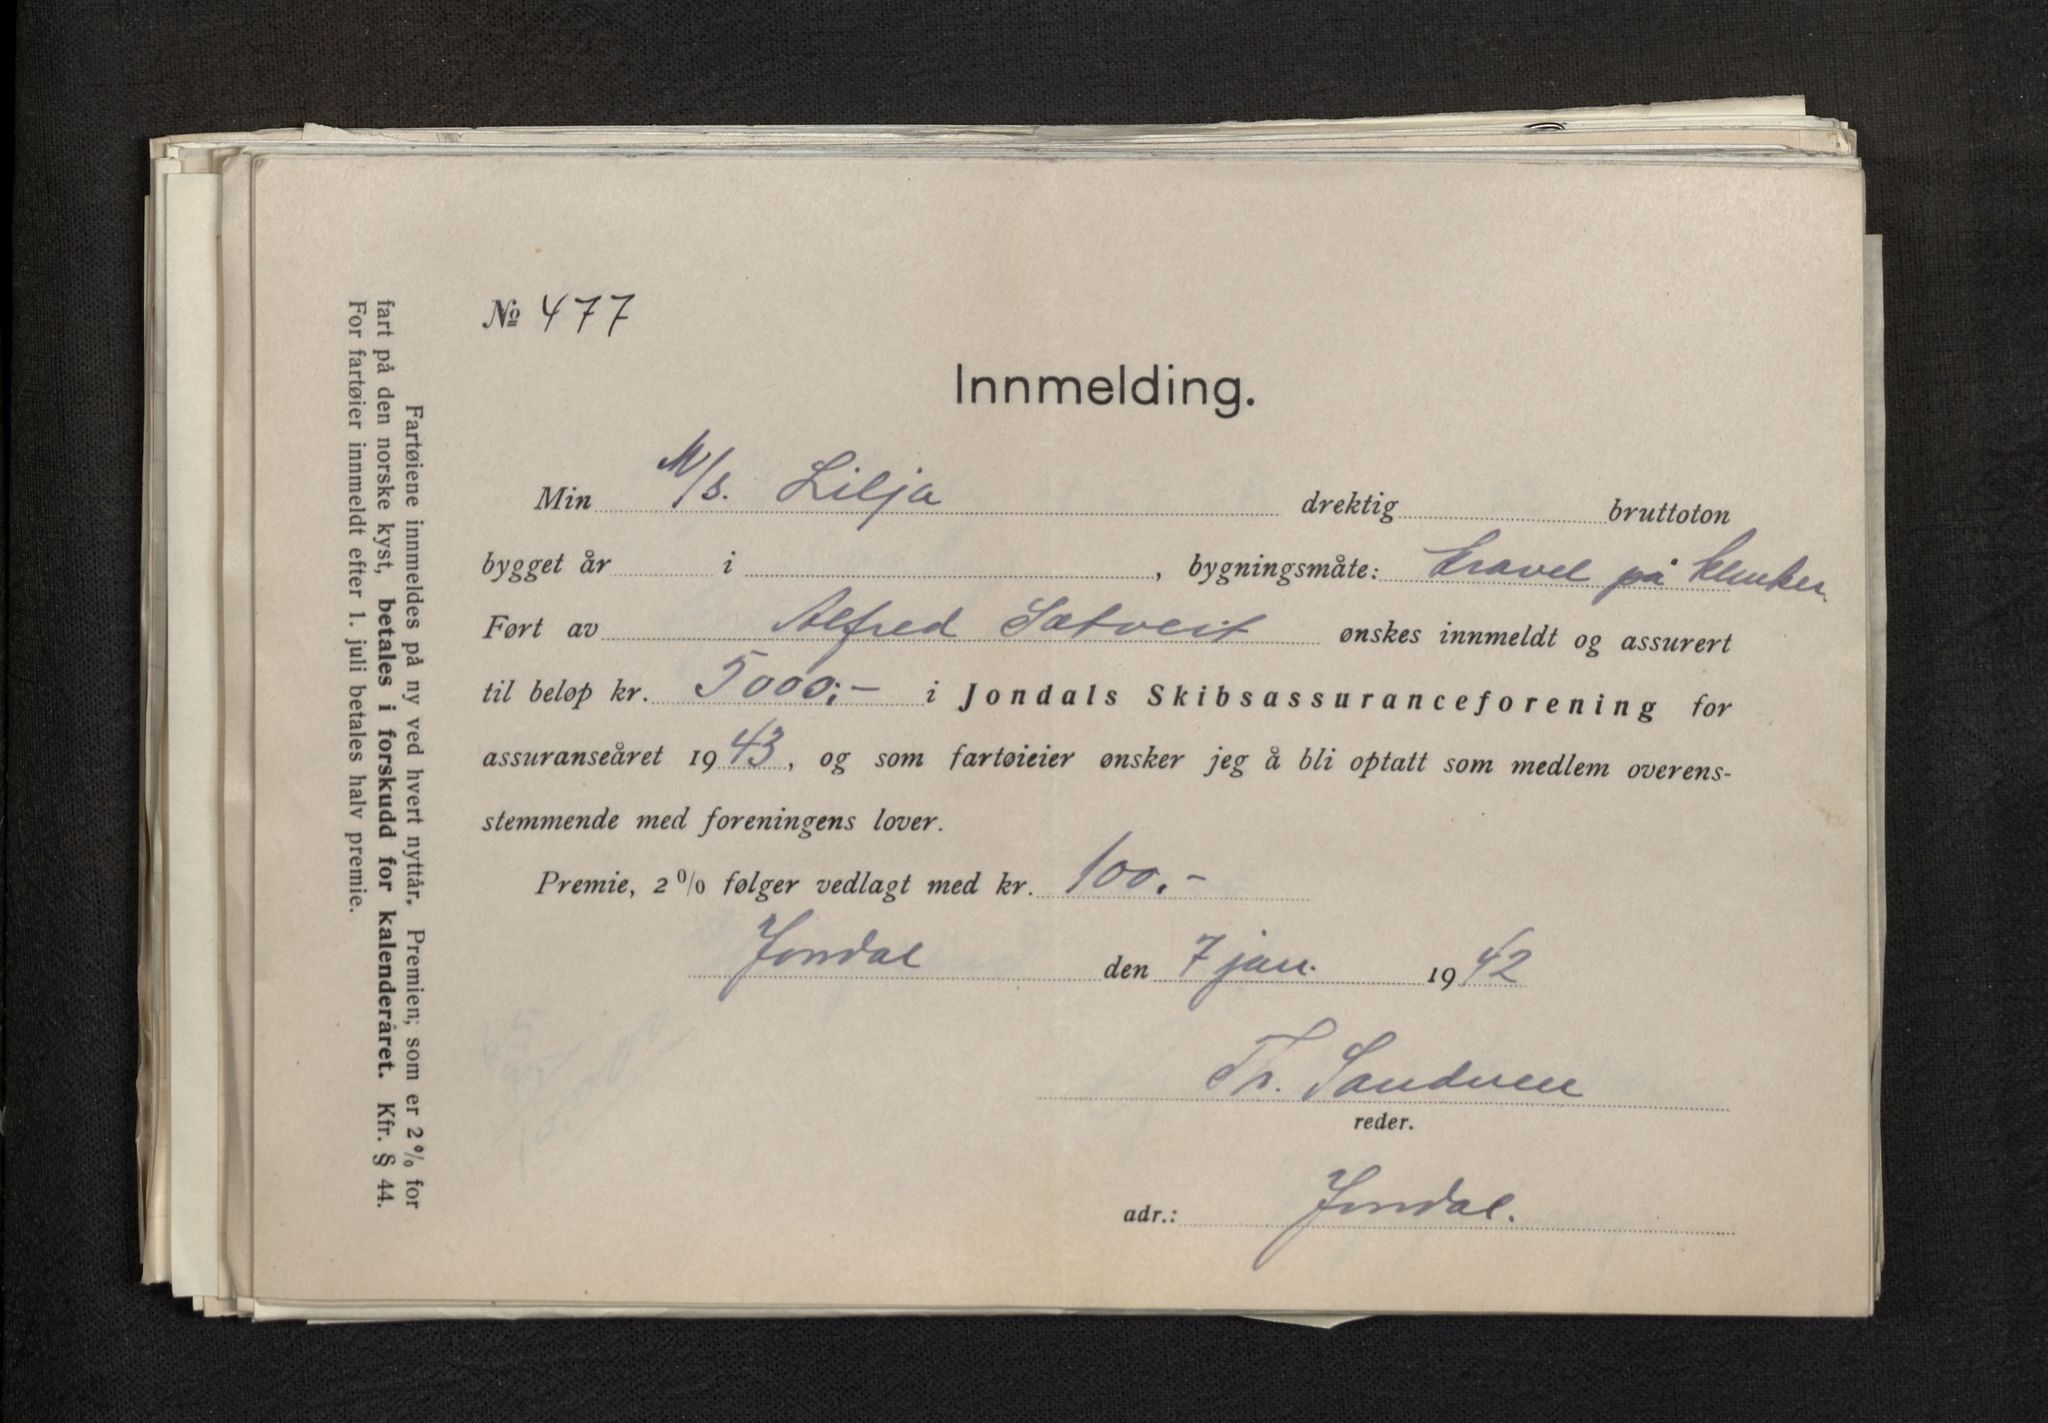 № 477
Innmelding.
Min M/s. Lilja drektig bruttoton
bygget år i , bygningsmåte: kravel på klinker
Ført av Alfred Sætveit ønskes innmeldt og assurert
til beløp kr. 5000,- i Jondals Skibsassuranceforening for
assuranseåret 1943, og som fartøieier ønsker jeg å bli optatt som medlem overens-
stemmende med foreningens lover.
Premie, 2 % følger vedlagt med kr. 100,-
Jondal den 7 jan. 1942
Th. Sandven
reder.
adr.: Jondal.
Fartøiene innmeldes på ny ved hvert nyttår. Premien; som er 2 % for
fart på den norske kyst, betales i forskudd for kalenderåret. Kfr. § 44.
For fartøier innmeldt efter 1. juli betales halv premie.